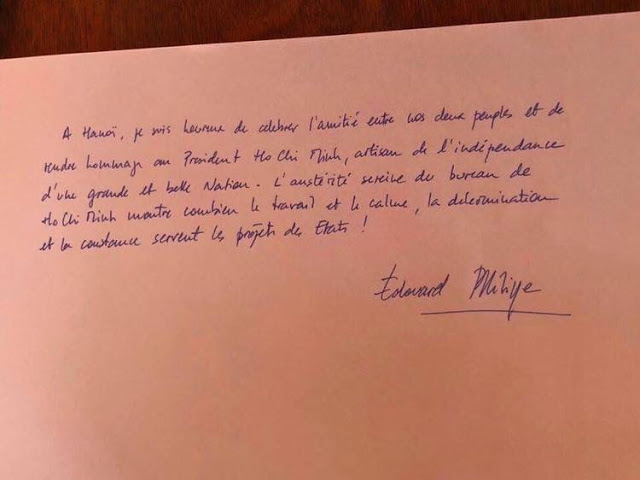 A Hanoï, je suis heureux de célébrer l'amitié entre nos deux peuples et de
rendre hommage au Président Ho Chi Minh, artisan de l'indépendance
d'une grande et belle Nation. L'austérité sereine du bureau de
Ho Chi Minh montre combien le travail et le calme, la détermination
et la constance servent les projets des Etats !
Édouard Philippe